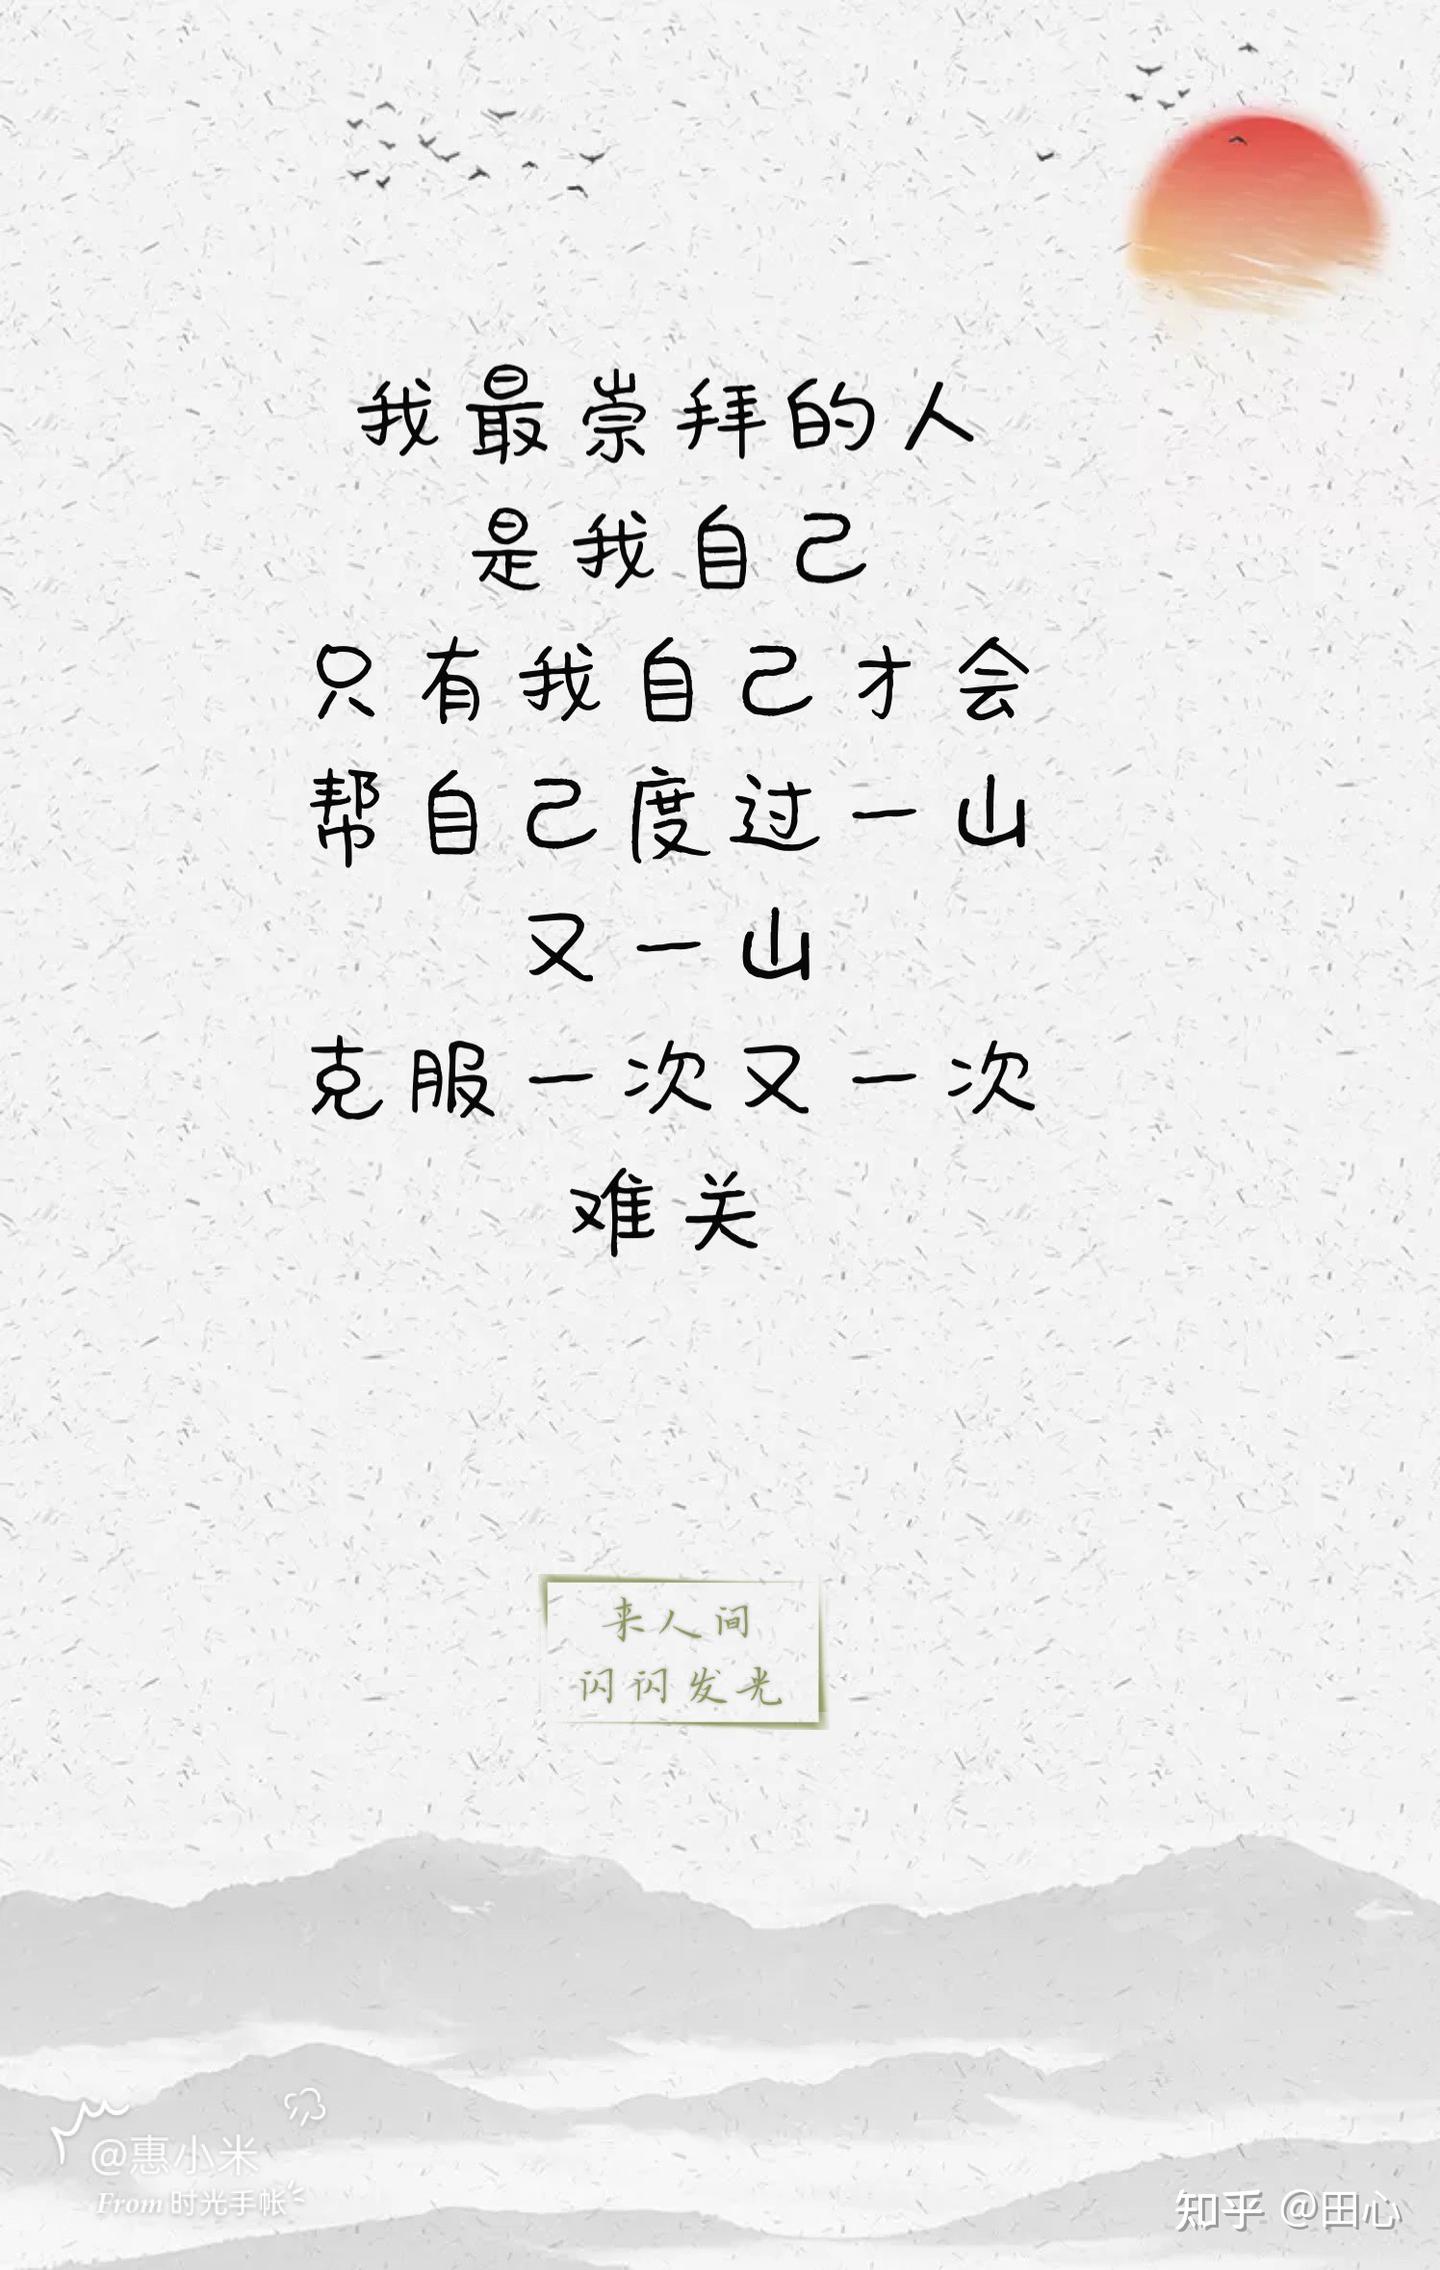 我最崇拜的人
是我自己
只有我自己才会
帮自己度过一山
又一山
克服一次又一次
难关
来人间
闪闪发光
@惠小米
From 时光手帐
知乎 @田心